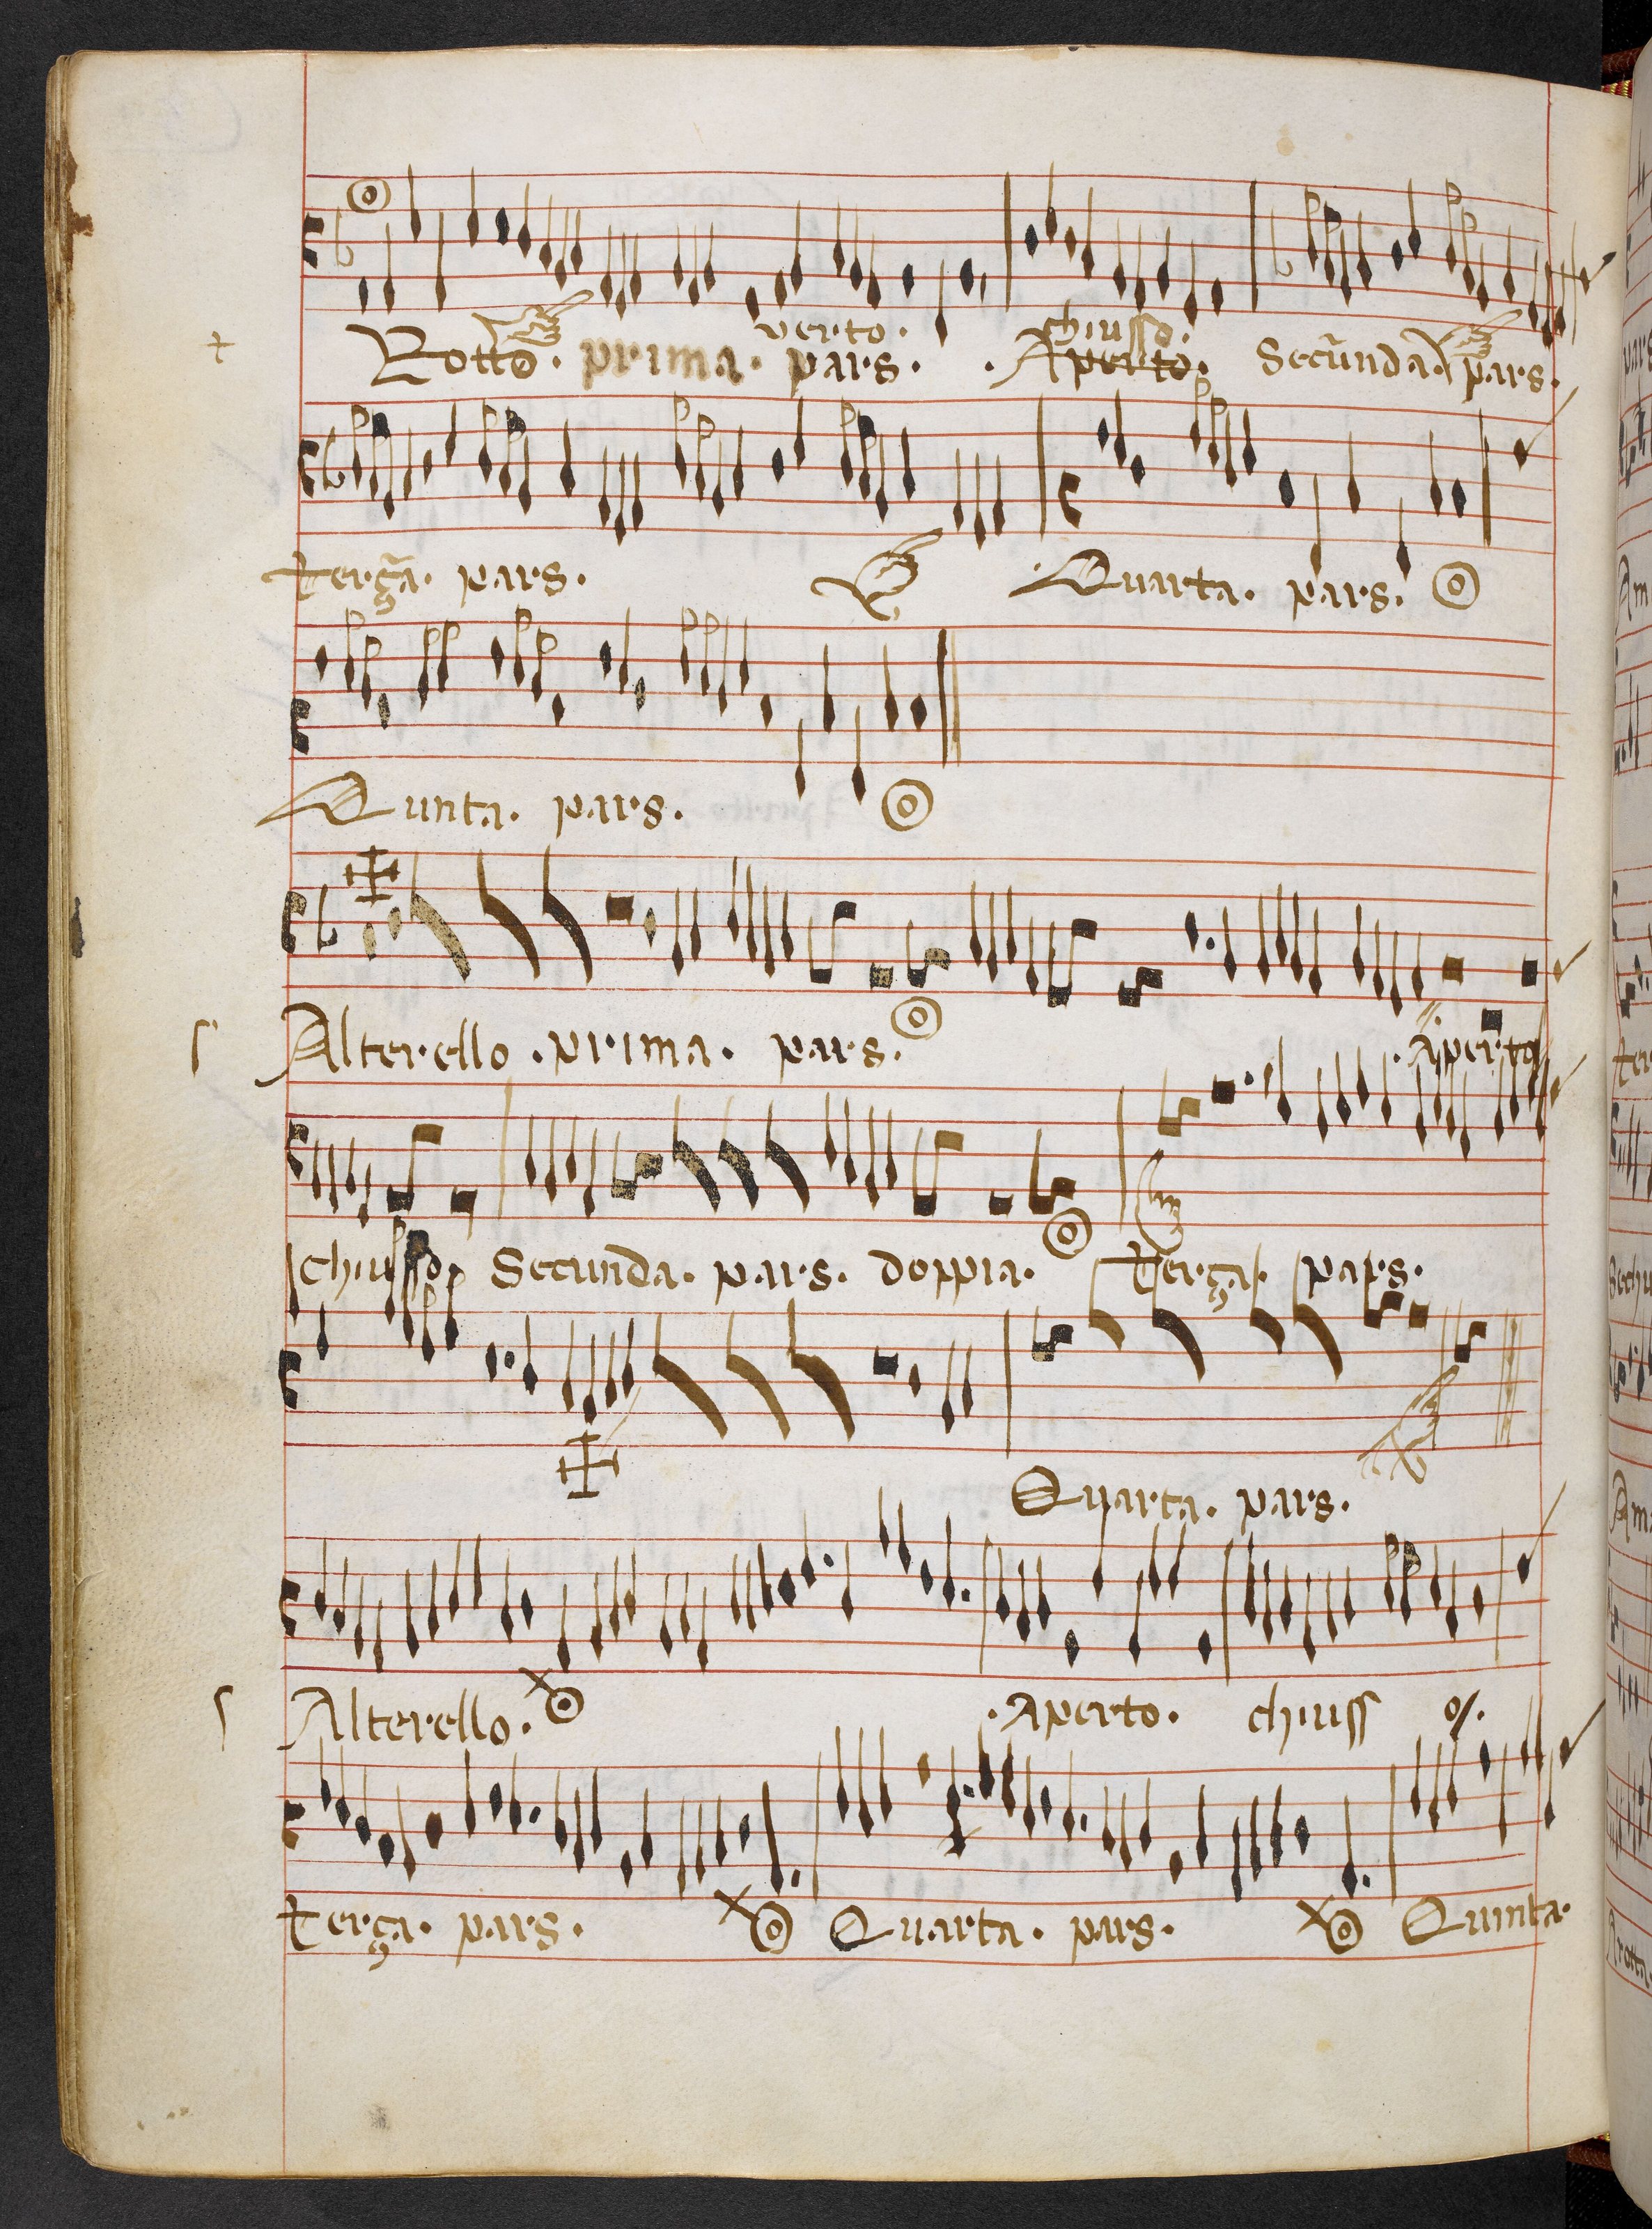 verto. chiusso.
Rotto. prima. pars. . Aperto. Secūnda. pars.
terça. pars. Quarta. pars.
Qunta. pars.
Salterello. prima. pars. Aperto
chiusso. Secunda. pars. doppia. terça. pars.
Quarta. pars.
Salterello. . Aperto. chiuss o/.
terça. pars. Quarta. pars. Quinta.